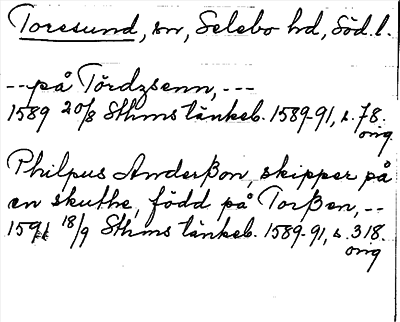 Toresund, sn, Selebo hd, Söd.l.
-- på Tördzsenn, ---
1589 20/8 Sthms tänkeb. 1589-91, s. 78.
orig
Philpus Anderßon, skipper på
en skuthe, född på Torßen, --
1591 18/9 Sthms tänkeb. 1589-91, s. 318.
orig